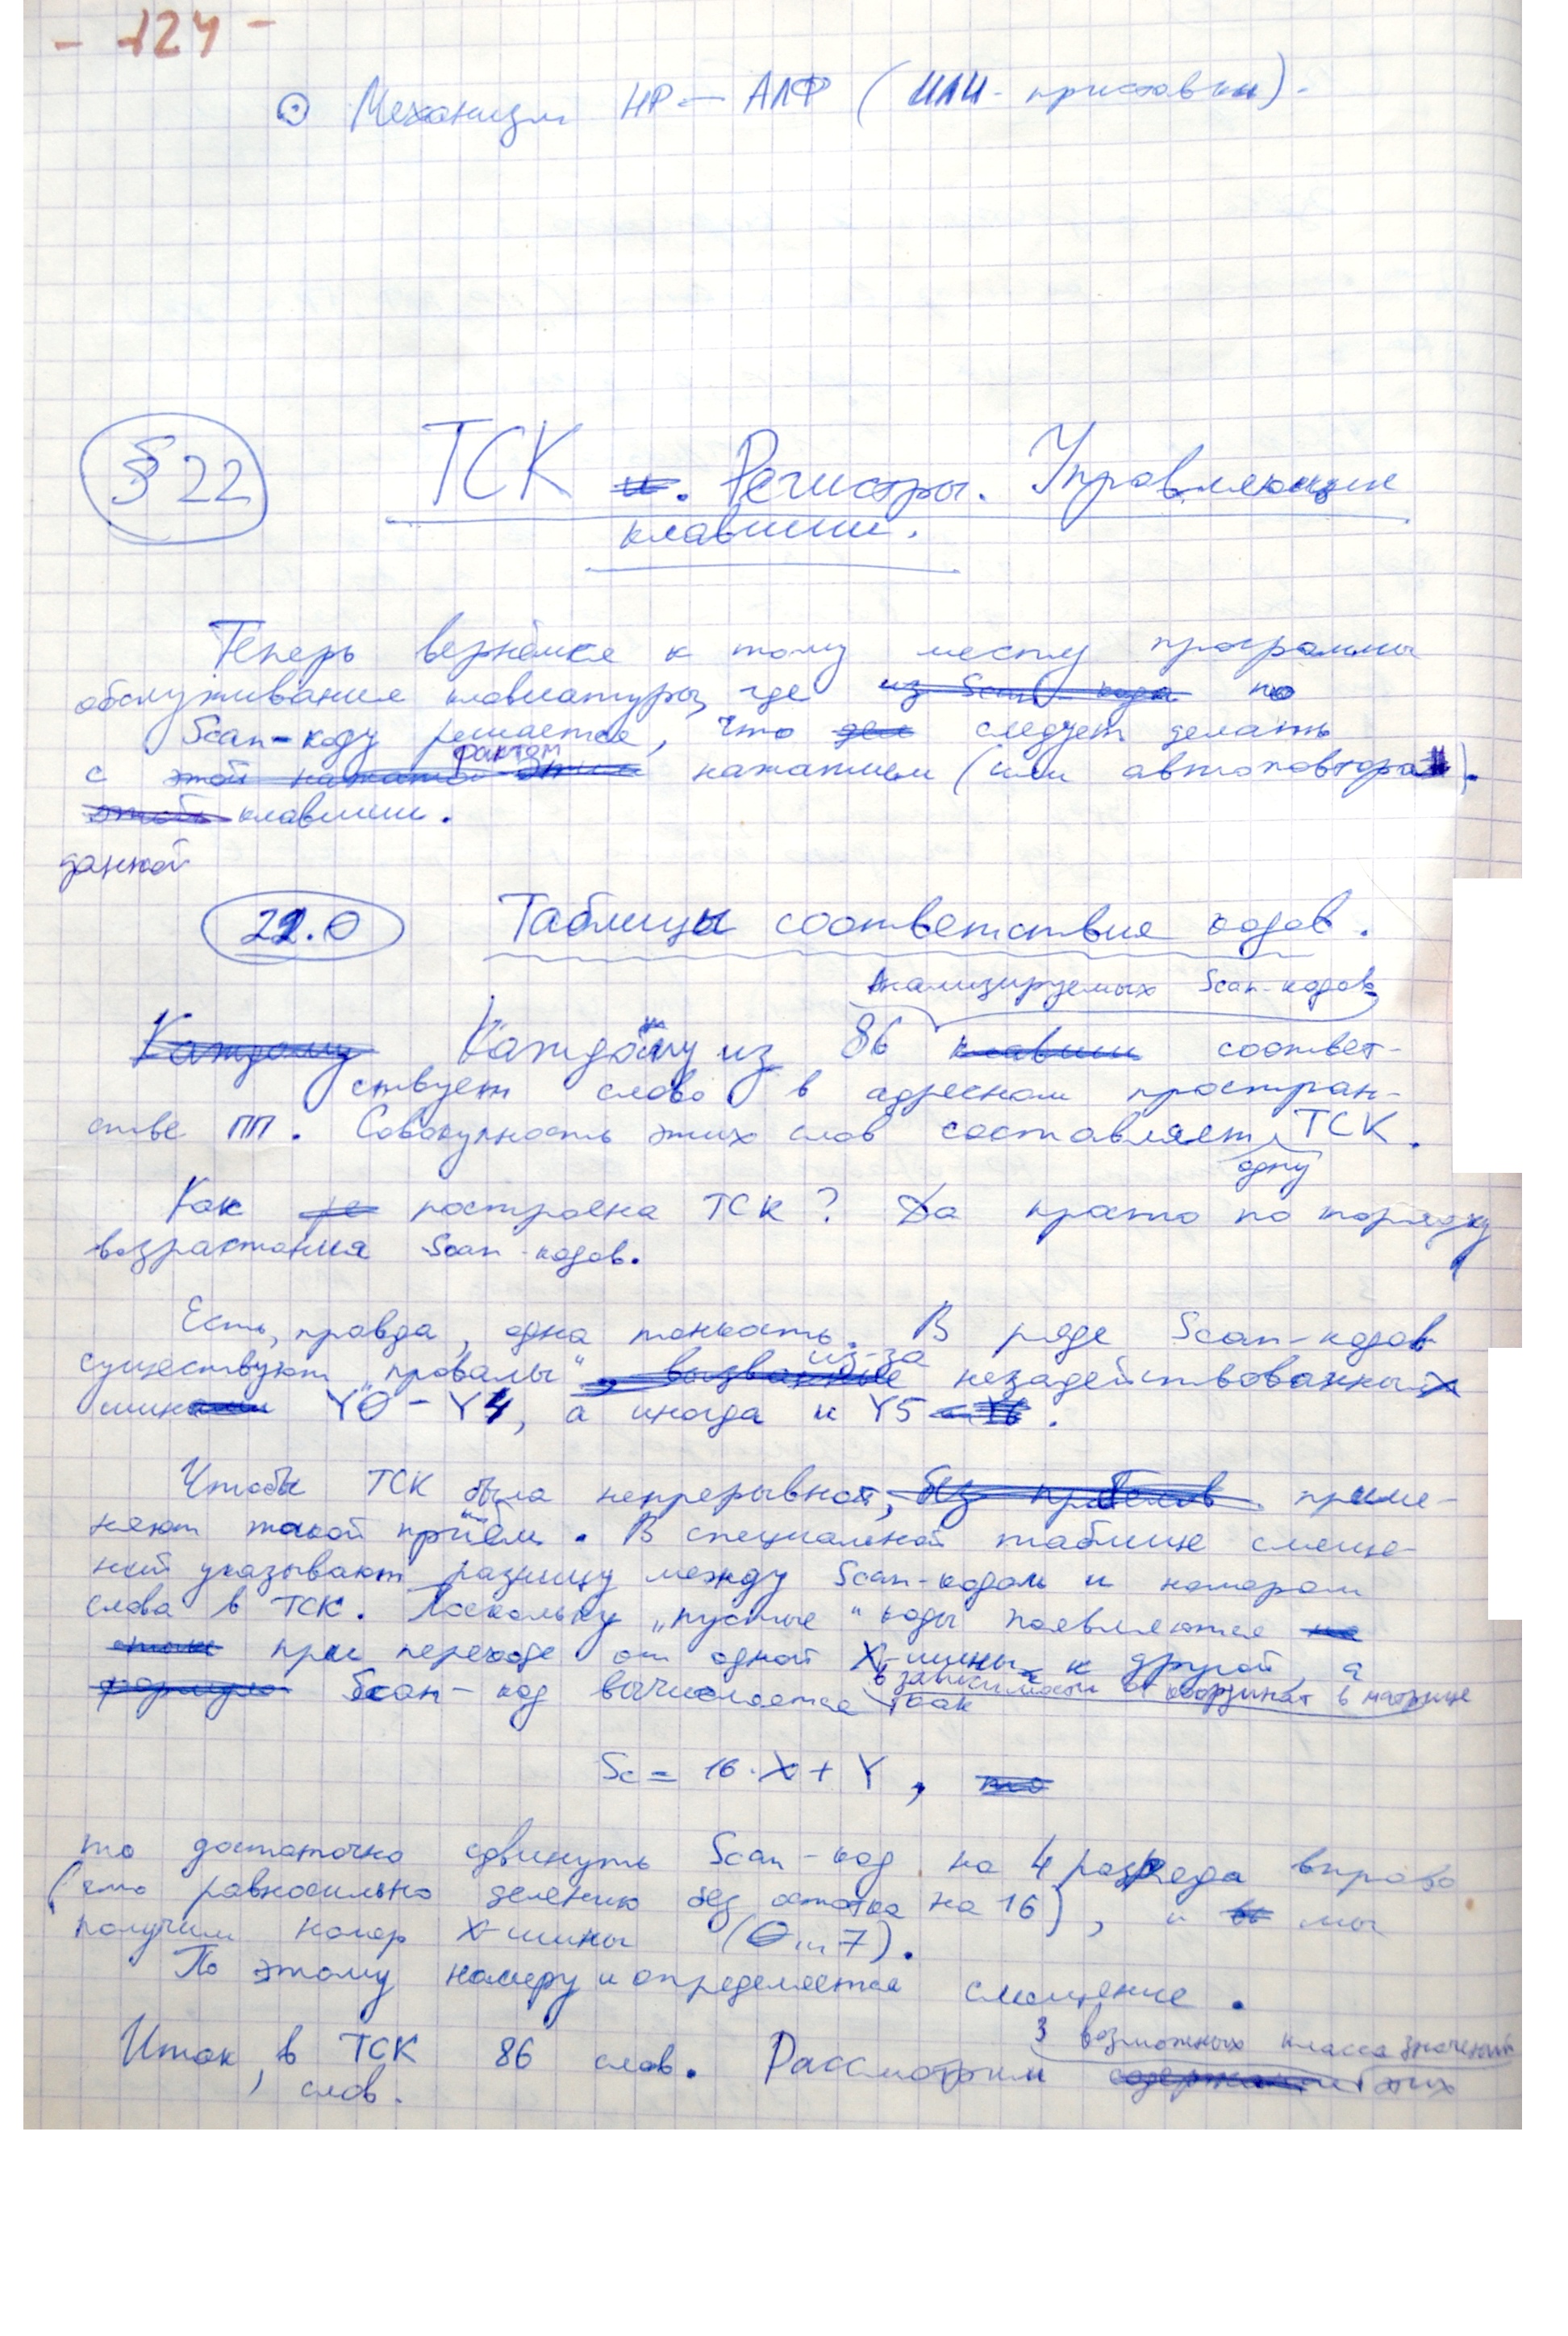 - 124 -
⊙ Механизм НР — АЛФ (ИЛИ - приставки).
§ 22
ТСК . Регистры. Управляющие
клавиши.
Теперь вернёмся к тому месту программы
обслуживания клавиатуры, где по
Scan-коду решается, что следует делать
с фактом нажатием (или автоповтора).
клавиши.
данной
22.0 Таблицы соответствия кодов.
Анализируемых Scan-кодов
Каждому из 86 соответ-
ствует слово в адресном простран-
стве ПП. Совокупность этих слов составляет ТСК.
одну
Как построена ТСК? Да просто по порядку
возрастания Scan-кодов.
Есть, правда, одна тонкость. В ряде Scan-кодов
существуют „провалы“ из-за незадействованных
шин Y0 - Y4, а иногда и Y5 .
Чтобы ТСК была непрерывной, приме-
няют такой приём. В специальной таблице смеще-
ний указывают разницу между Scan-кодом и номером
слова в ТСК. Поскольку „пустые“ коды появляются
при переходе от одной X-шины к другой, а
в зависимости от координат в матрице
Scan-код вычисляется как
Sc = 16·X + Y ,
то достаточно сдвинуть Scan-код на 4 разряда вправо
(что равносильно делению без остатка на 16), и мы
получим номер X-шины (0...7).
По этому номеру и определяется смещение.
3 возможных класса значений
Итак, в ТСК 86 слов. Рассмотрим этих
слов.